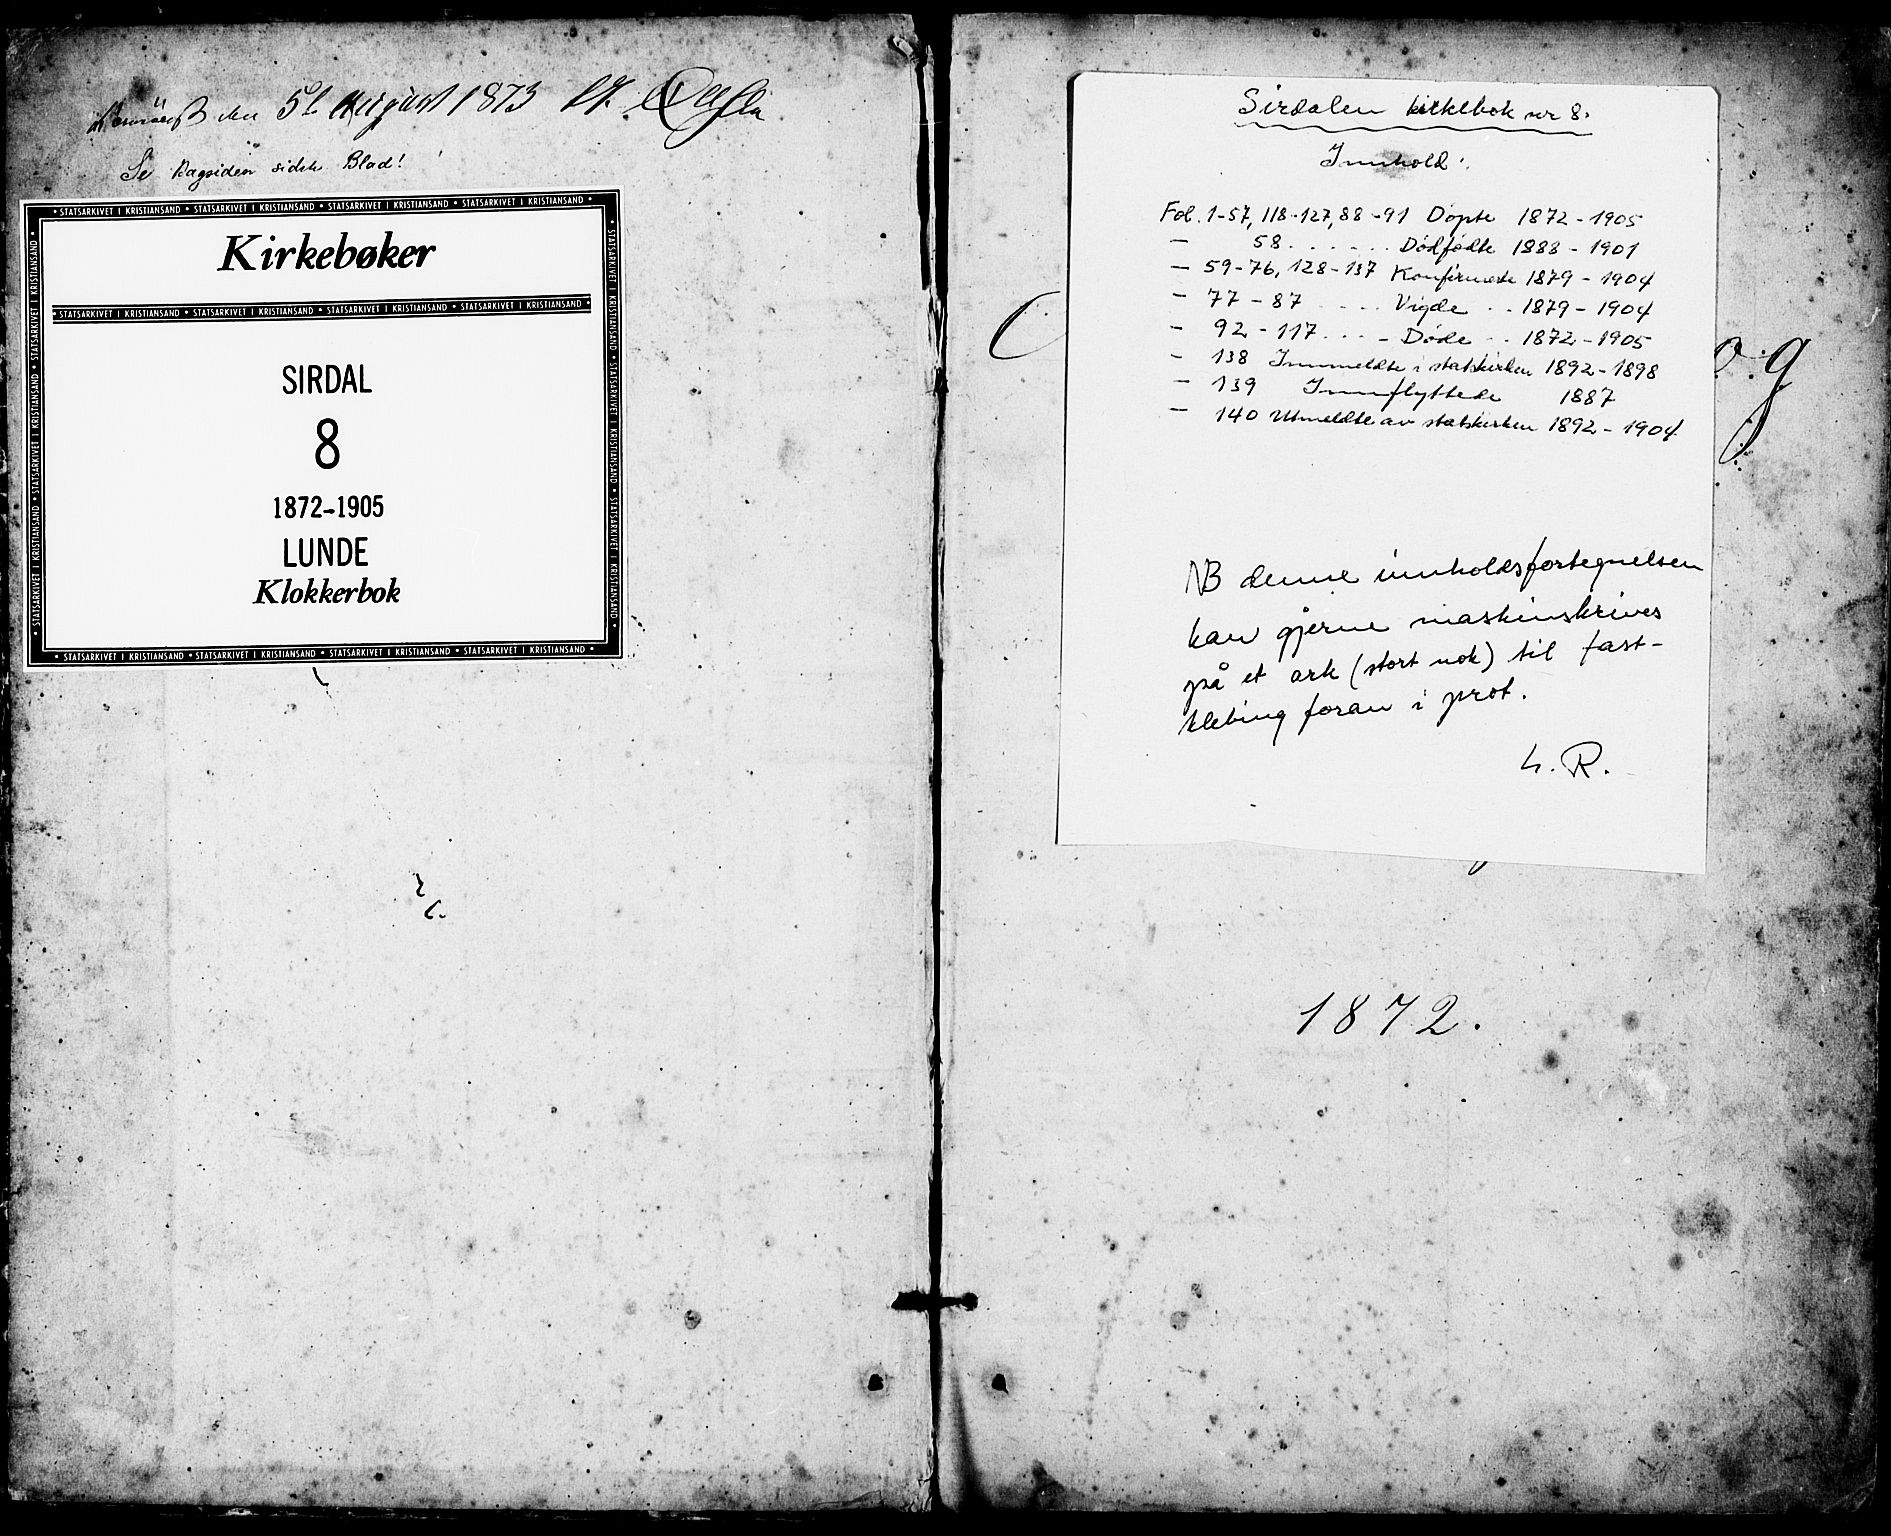 den 5t August 1873
Se Bagsiden sidste Blad!
STATSARKIVET I KRISTIANSAND
Kirkebøker
STATSARKIVET I KRISTIANSAND
SIRDAL
8
1872-1905
LUNDE
Klokkerbok
STATSARKIVET I KRISTIANSAND
Sirdalen kirkebok nr 8.
Innhold:
Fol. 1-57, 118-127, 88-91 Døpte 1872-1905
— 58. . . . . . . Dødfødte 1888-1901
— 59-76, 128-137 Konfirmerte 1879-1904
— 77-87 . . . . Vigde . . 1879-1904
— 92-117. . . . Døde . . 1872-1905
— 138 Innmeldte i statskirken 1892-1898
— 139 Innflyttede 1887
— 140 Utmeldte av statskirken 1892-1904
NB denne innholdsfortegnelsen
kan gjerne maskinskrives
på et ark (stort nok) til fast-
klebing foran i prot.
L. R.
og
1872.